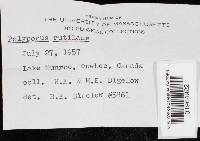 HERBARIUM OF
THE UNIVERSITY OF MASSACHUSETTS
MYCOLOGICAL COLLECTIONS
Polyporus rutilans
July 27, 1957
Lake Monroe, Quebec, Canada
coll. H.E. & M.E. Bigelow
det. H.E. Bigelow #5861